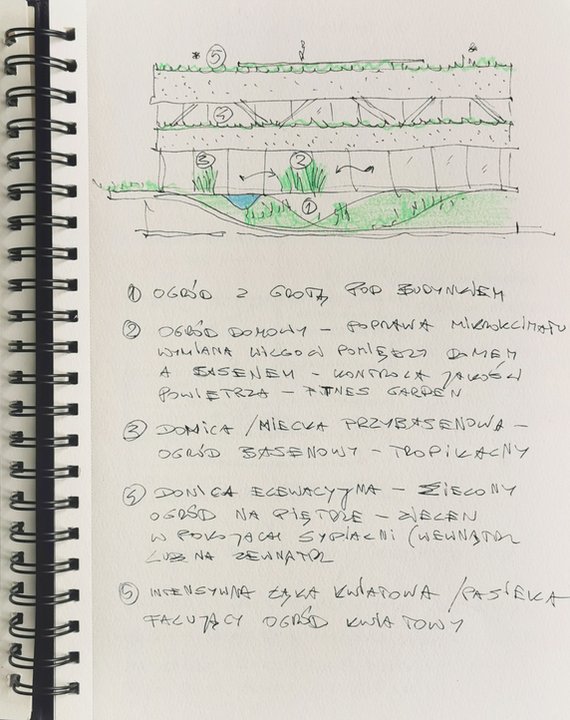 5
4
3 2
1
① OGRÓD Z GROTĄ POD BUDYNKIEM
② OGRÓD DOMOWY – POPRAWA MIKROKLIMATU
WYMIANA WILGOCI POMIĘDZY DOMEM
A BASENEM – KONTROLA JAKOŚCI
POWIETRZA – FITNES GARDEN
③ DONICA / MISKA PRZYBASENOWA –
OGRÓD BASENOWY – TROPIKALNY
④ DONICA ELEWACYJNA – ZIELONY
OGRÓD NA PIĘTRZE – ZIELEŃ
W POKOJACH SYPIALNI (WEWNĄTRZ
LUB NA ZEWNĄTRZ
⑤ INTENSYWNA ŁĄKA KWIATOWA / PASIEKA
FALUJĄCY OGRÓD KWIATOWY